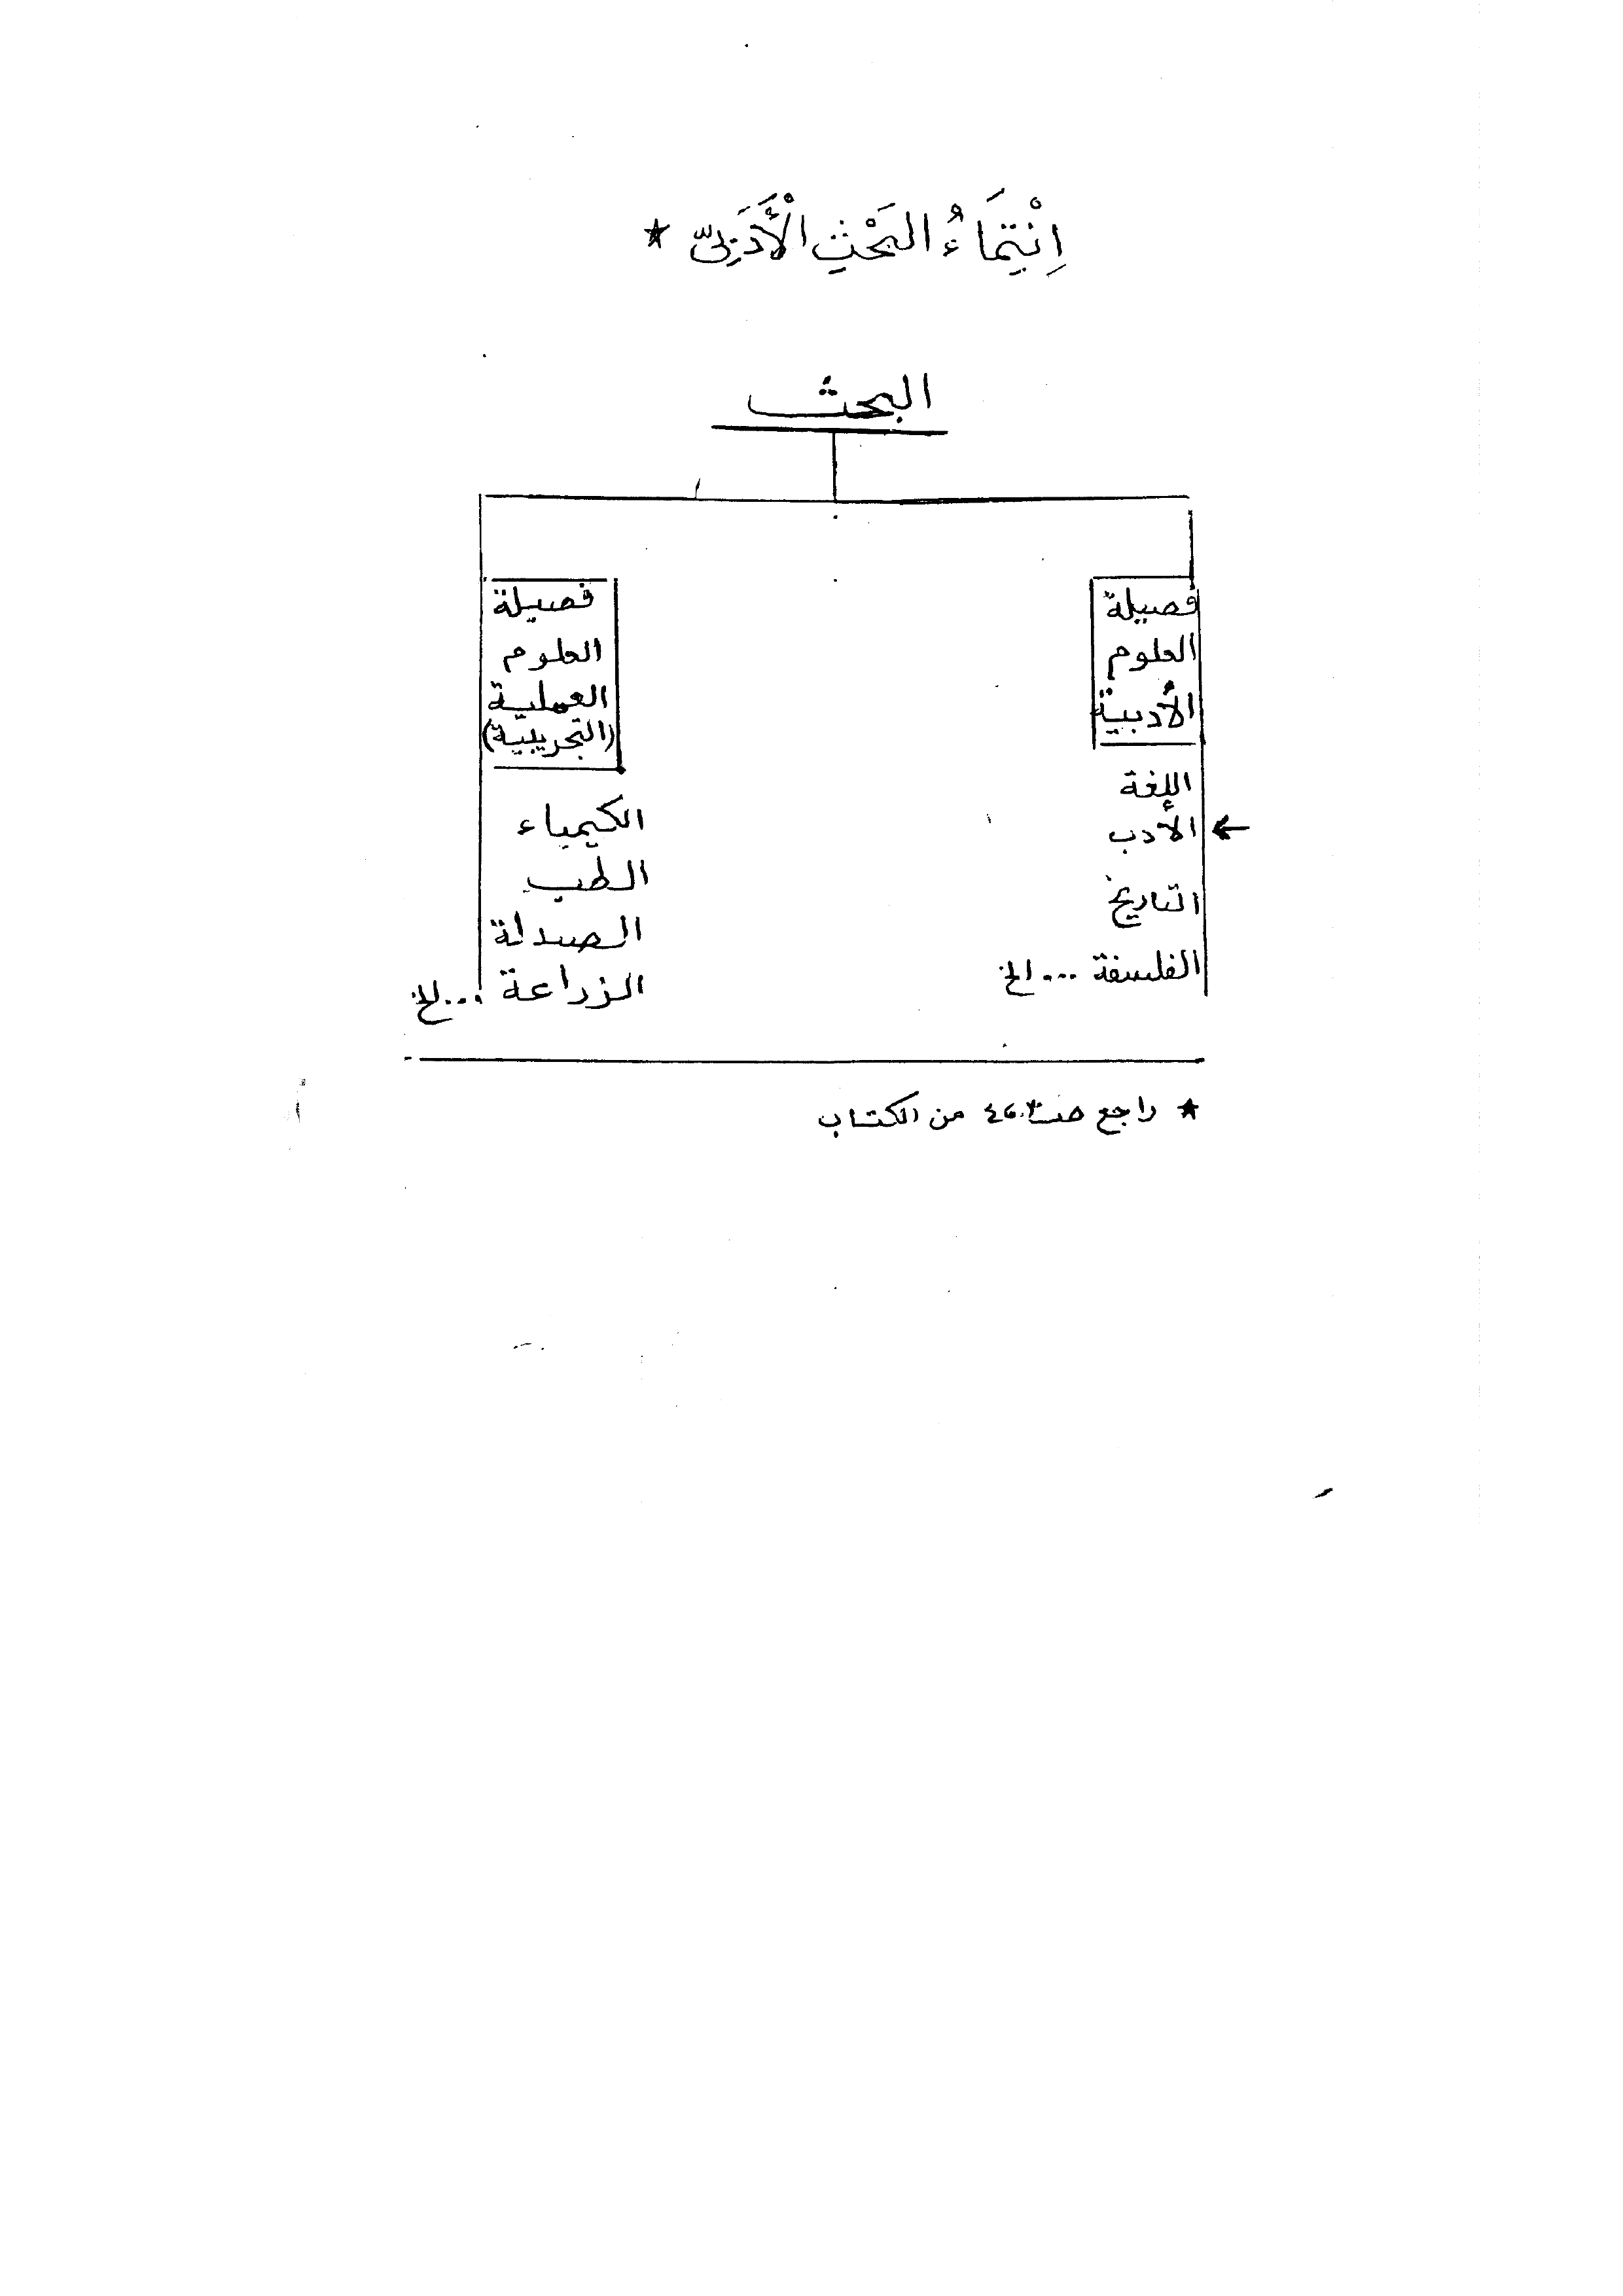 اِنْتِمَاءُ البَحْثِ الْأَدَبِيّ *
البحث
فصيلة
العلوم
الأدبية
اللغة
← الأدب
التاريخ
الفلسفة ... الخ
فصيلة
العلوم
العملية
(التجريبية)
الكيمياء
الطب
الصيدلة
الزراعة ... الخ
* راجع من الكتاب